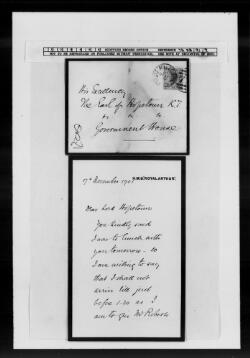 SCOTTISH RECORD OFFICE
NOT TO BE REPRODUCED OR PUBLISHED WITHOUT PERMISSION.
His Excellency
The Earl of Hopetoun K.T
Government House
17th December 1901
H.M.S "ROYAL ARTHUR".
Dear Lord Hopetoun
You kindly said
I was to lunch with
you tomorrow - so
I am writing to say
that I shall not
arrive till just
before 1.30 as I
am to